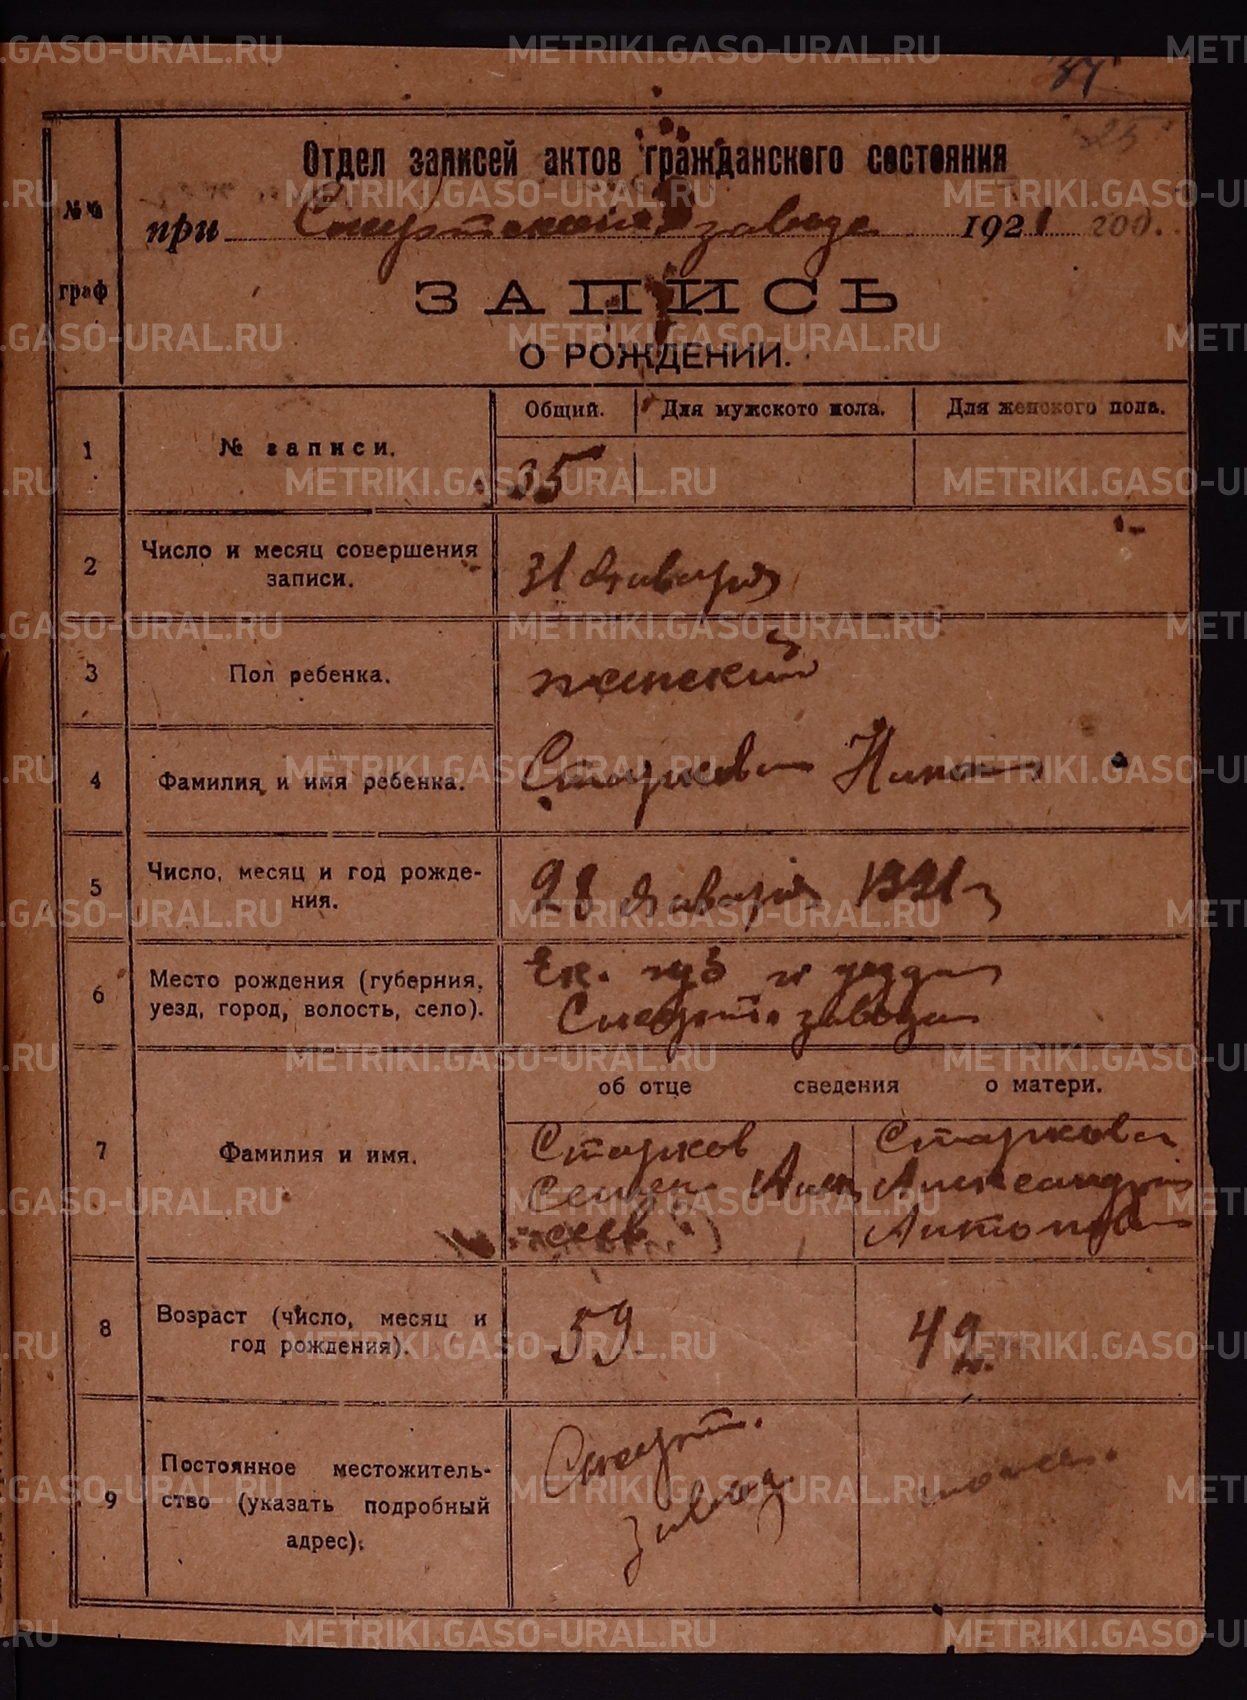 37
25
Отдел записей актов гражданского состояния
№№ граф
при Сысертском заводе 1921 год.
ЗАПИСЬ
О РОЖДЕНИИ.
Общий. Для мужского пола. Для женского пола.
1 № записи. 35
2 Число и месяц совершения записи. 31 Января
3 Пол ребенка. женский
4 Фамилия и имя ребенка. Старкова Нина
5 Число, месяц и год рождения. 28 Января 1921 г
6 Место рождения (губерния, уезд, город, волость, село). Ек. губ и уезда
Сысерт. завода
об отце сведения о матери.
7 Фамилия и имя.
Старков Старкова
Семен Алек Александра
сеев Антонова
8 Возраст (число, месяц и год рождения). 59 42
9 Постоянное местожительство (указать подробный адрес). Сысерт. завод тоже.
METRIKI.GASO-URAL.RU